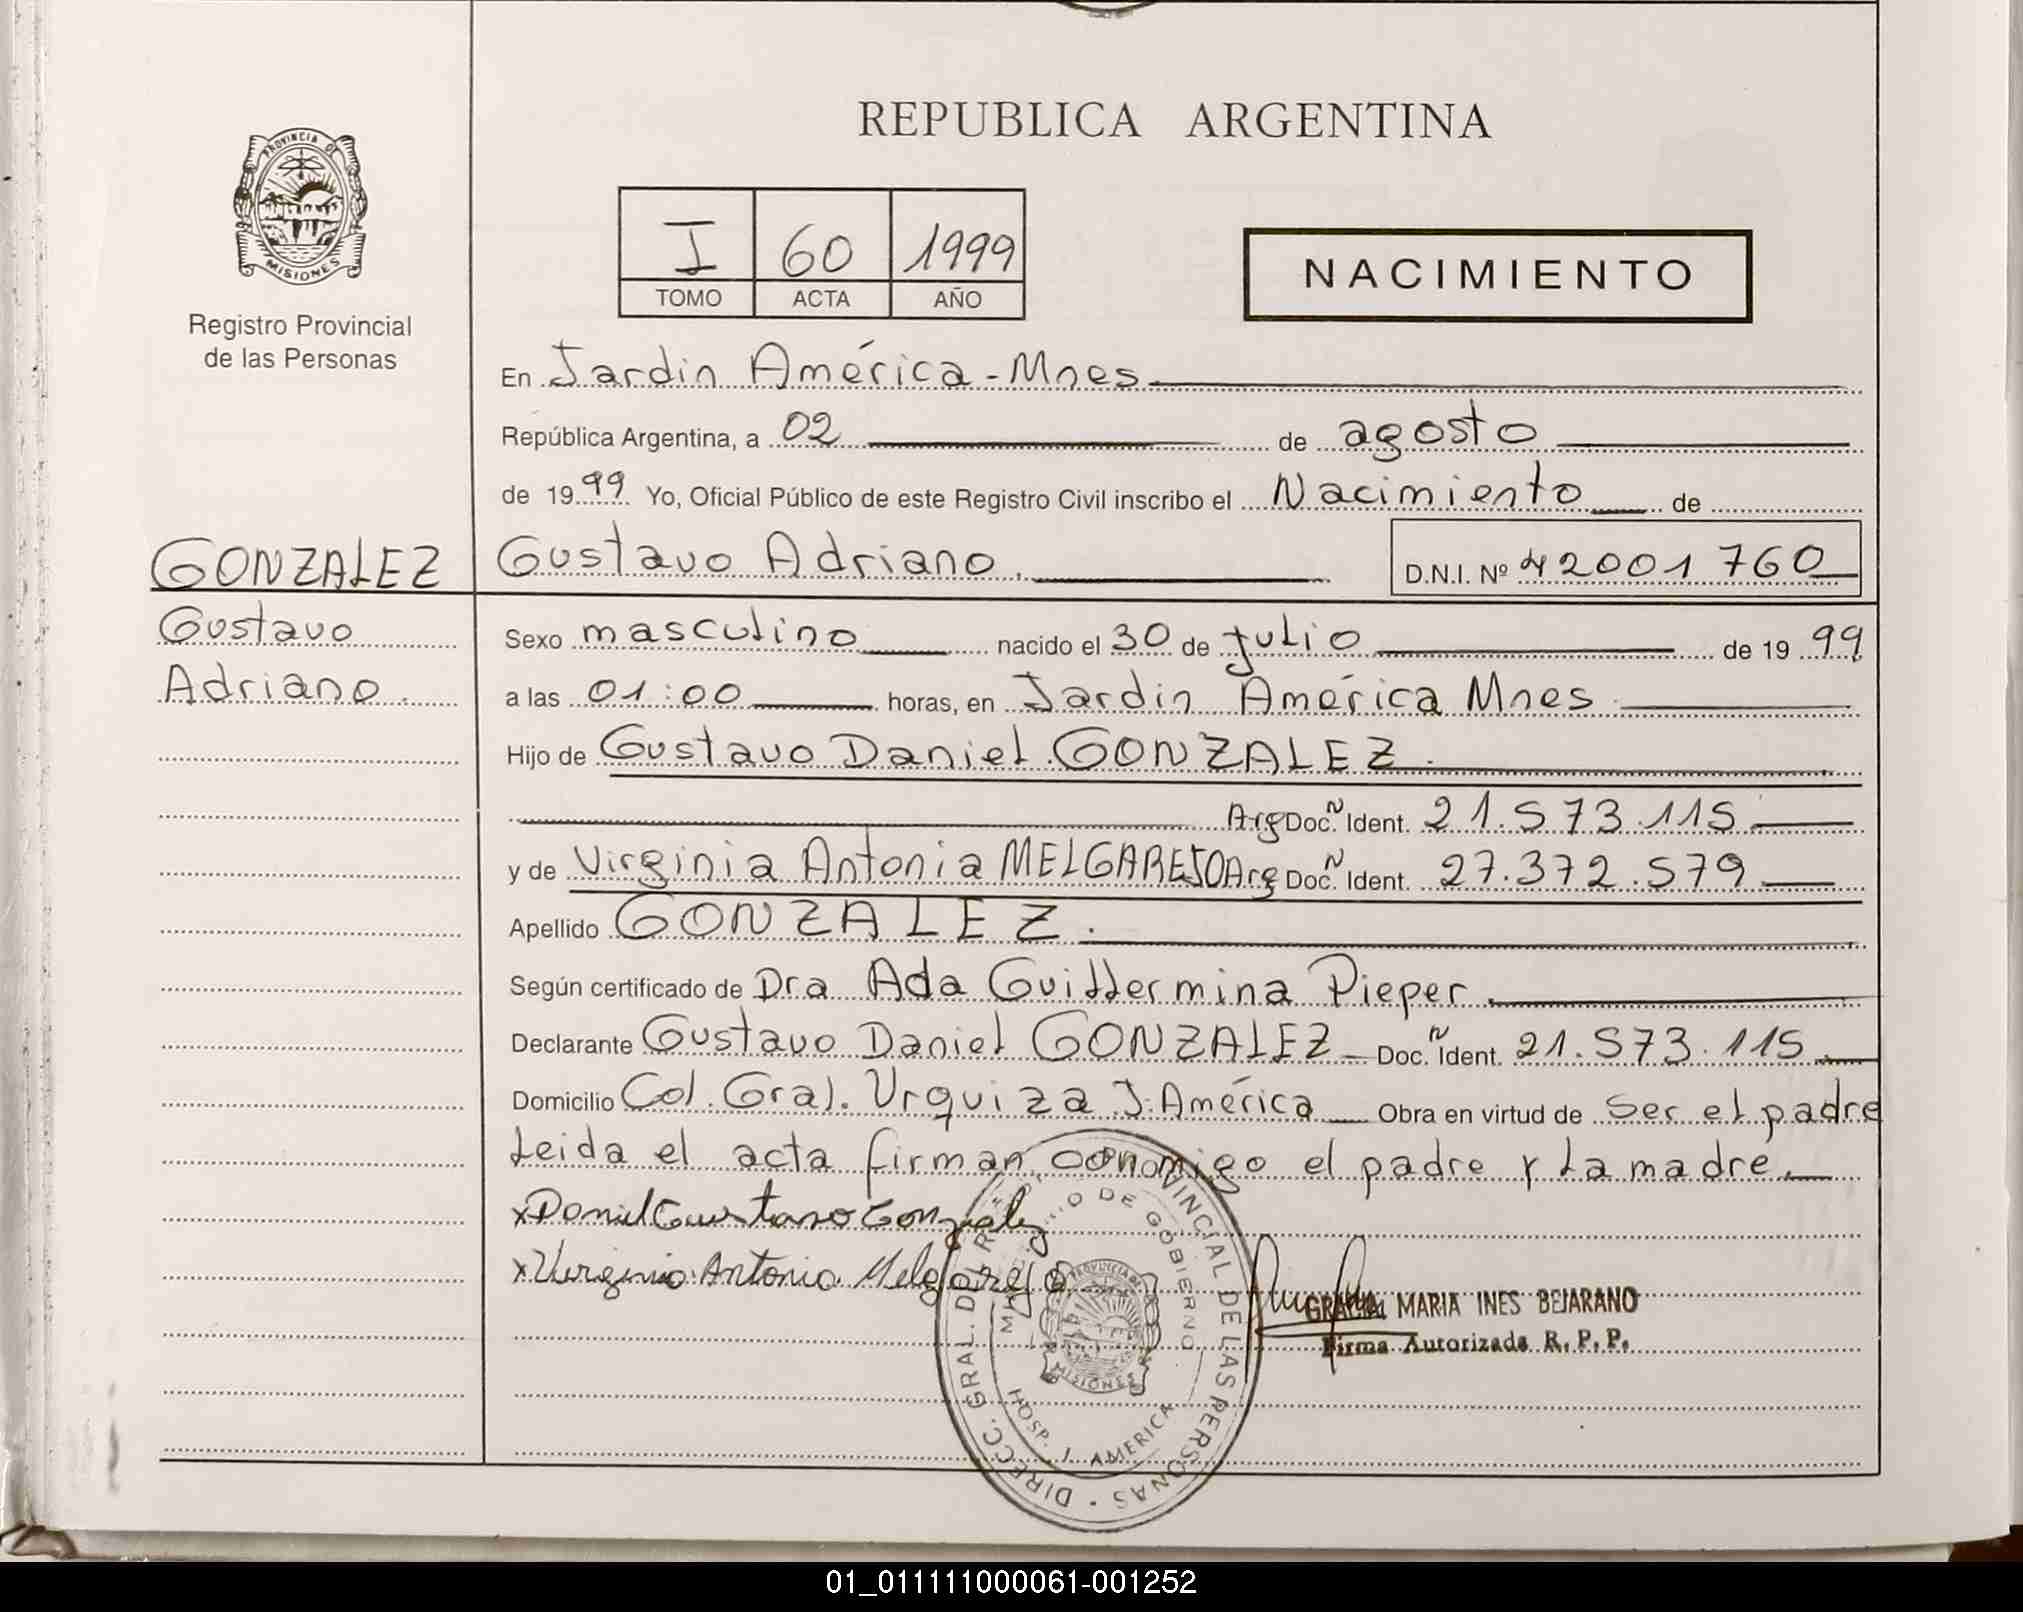 REPUBLICA ARGENTINA
PROVINCIA DE
MISIONES
Registro Provincial
de las Personas
I 60 1999
TOMO ACTA AÑO
NACIMIENTO
En Jardin América - Mnes
República Argentina, a 02 de agosto
de 1999 Yo, Oficial Público de este Registro Civil inscribo el Nacimiento de
GONZALEZ Gustavo Adriano. D.N.I. Nº 42001760
Gustavo
Adriano.
Sexo masculino nacido el 30 de Julio de 1999
a las 01:00 horas, en Jardin América Mnes
Hijo de Gustavo Daniel GONZALEZ.
Arg Doc. Ñ Ident. 21.573.115
y de Virginia Antonia MELGAREJO Arg Doc. Ñ Ident. 27.372.579
Apellido GONZALEZ.
Según certificado de Dra Ada Guillermina Pieper
Declarante Gustavo Daniel GONZALEZ Doc. Ñ Ident. 21.573.115
Domicilio Col. Gral. Urquiza J. América Obra en virtud de Ser el padre
Leida el acta firman conmigo el padre y la madre.
x Daniel Gustavo Gonzalez
x Virginia Antonia Melgarejo
GRACIELA MARIA INES BEJARANO
Firma Autorizada R. P. P.
DIRECC. GRAL. DEL R PROVINCIAL DE LAS PERSONAS
DE GOBIERNO
PROVINCIA DE
MISIONES
HOSP. J. AMERICA
01_011111000061-001252